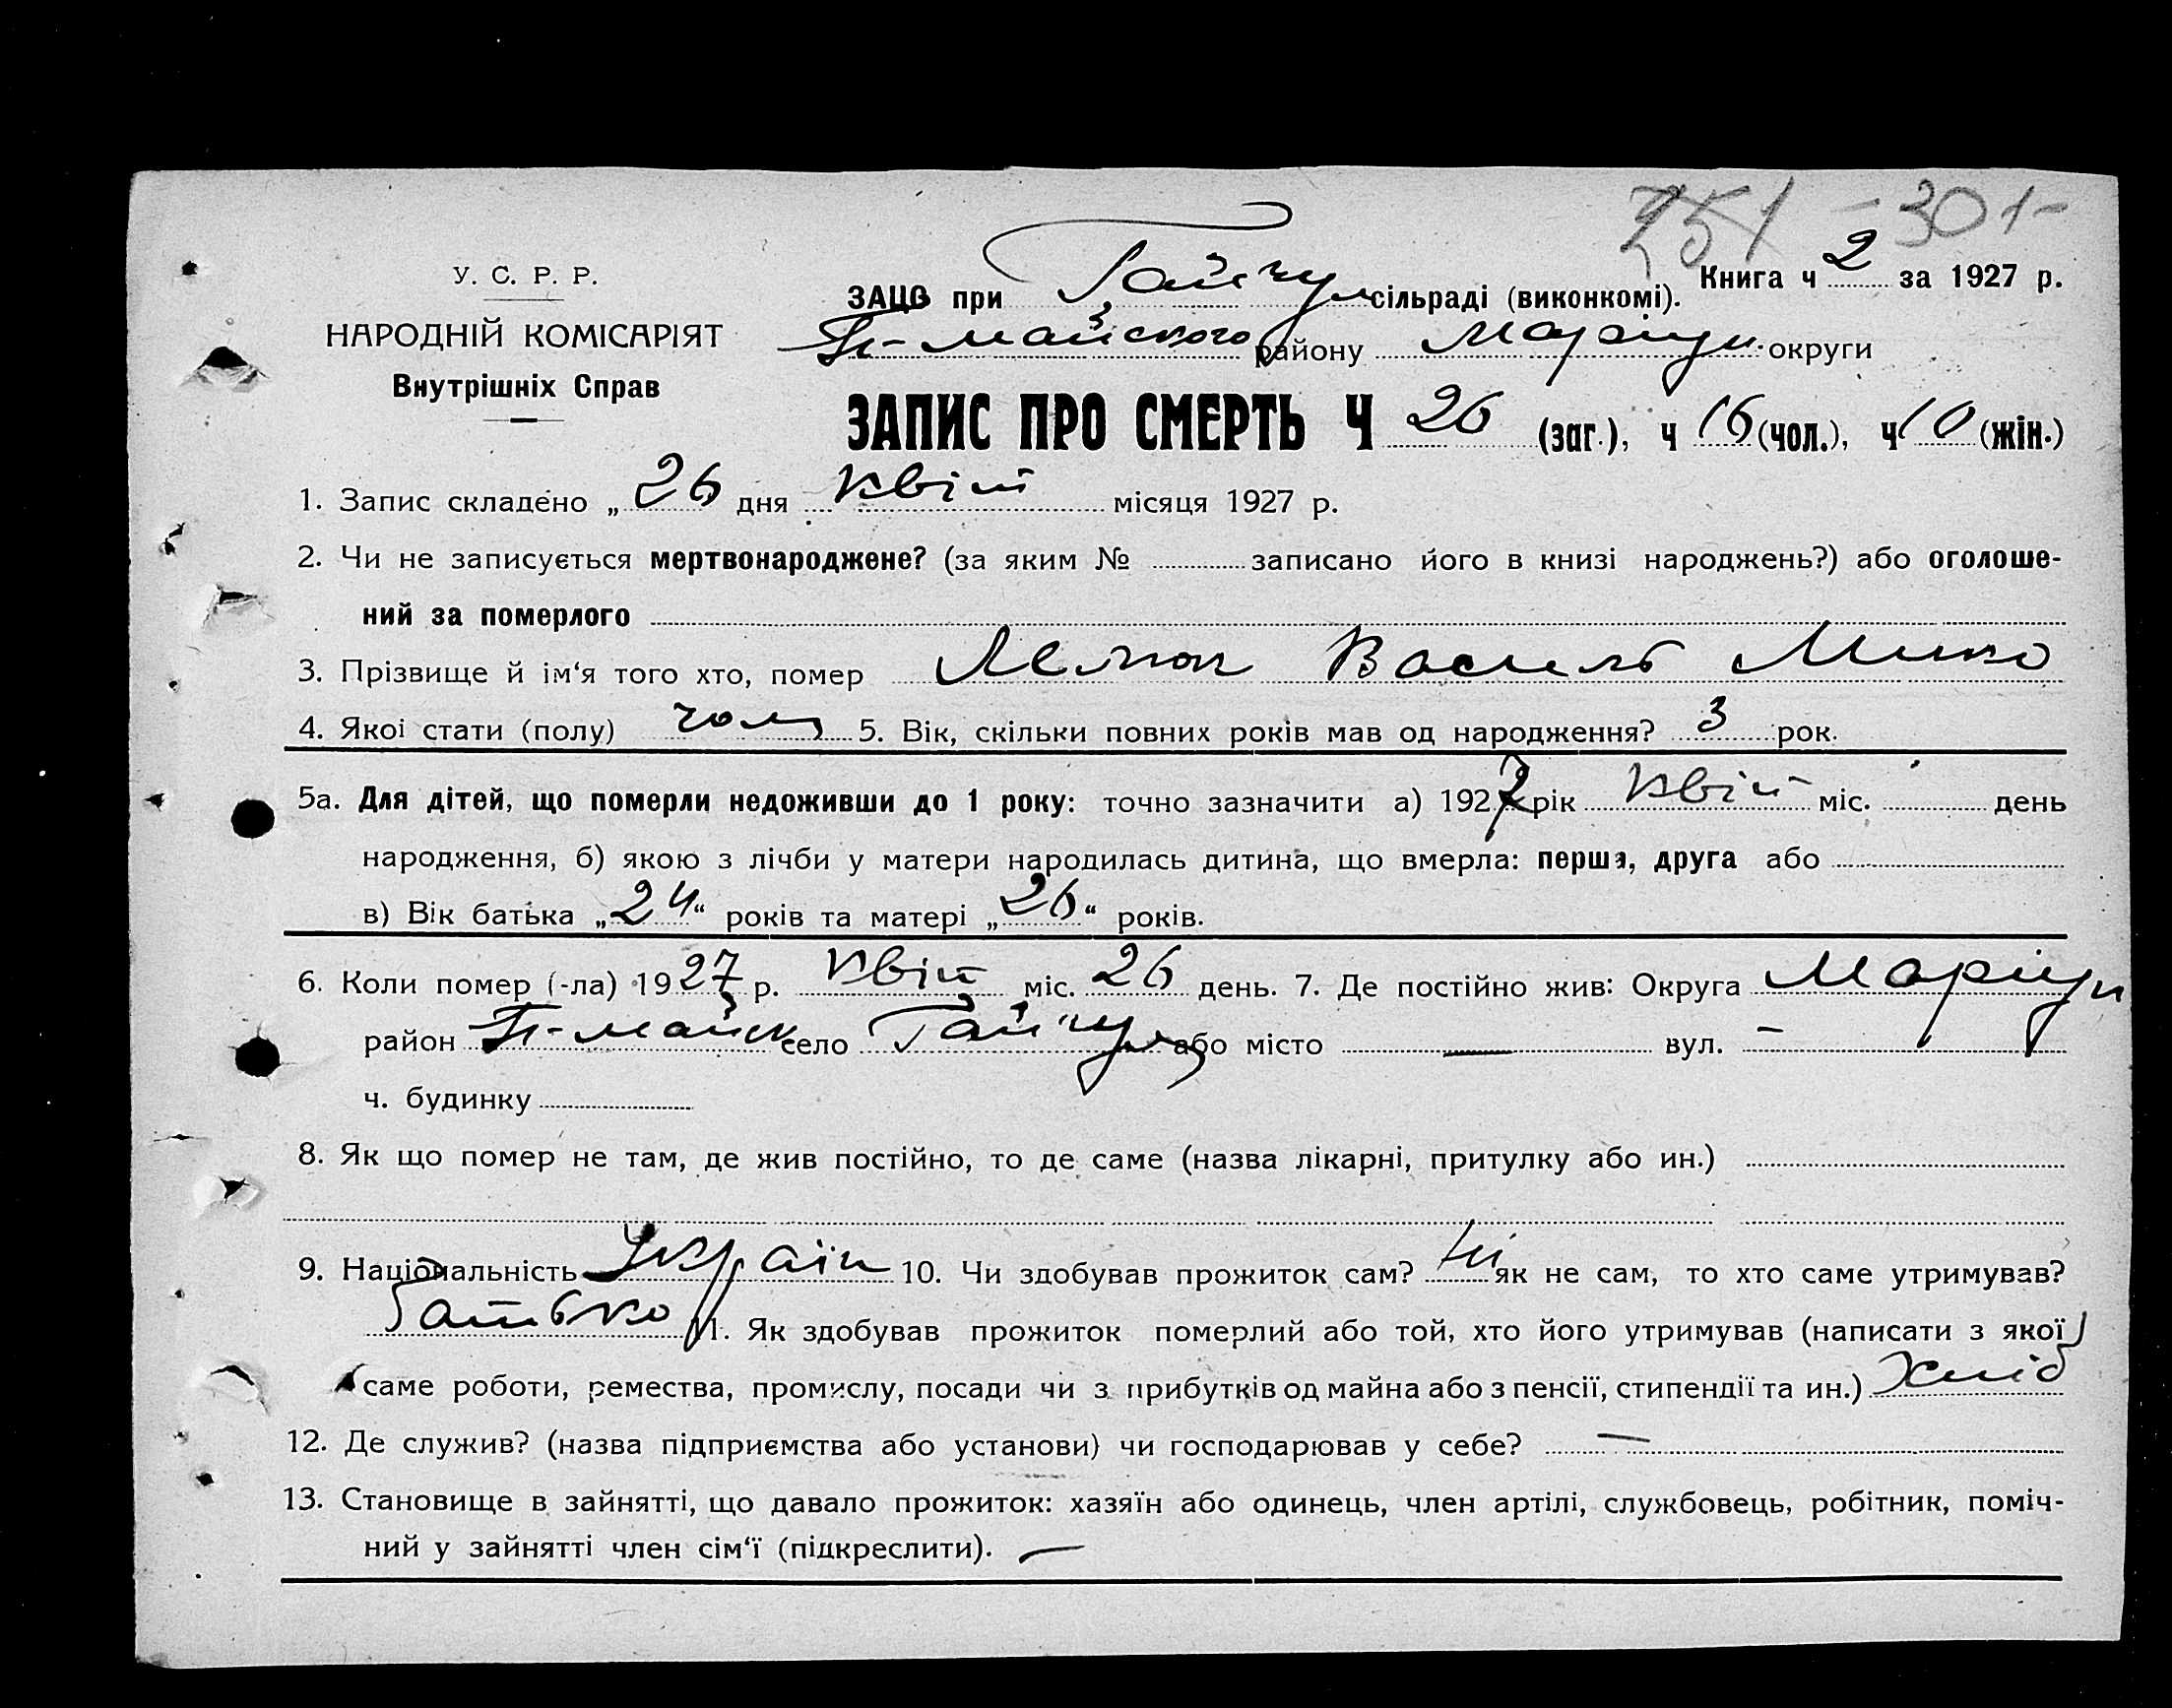 251 - 301-
У. С. Р. Р.
НАРОДНІЙ КОМІСАРІЯТ
Внутрішніх Справ
Книга ч 2 за 1927 р.
ЗАЦС при Гайчул сільраді (виконкомі).
П-майського району Маріуп. округи
ЗАПИС ПРО СМЕРТЬ Ч 26 (заг.), ч 16 (чол.), ч 10 (жін.)
1. Запис складено „ 26 дня квіт місяця 1927 р.
2. Чи не записується мертвонароджене? (за яким № записано його в книзі народжень?) або оголоше-
ний за померлого
3. Прізвище й ім‘я того хто, помер Василь Мико
4. Якоі стати (полу) чол 5. Вік, скільки повних років мав од народження? 3 рок.
5а. Для дітей, що померли недоживши до 1 року: точно зазначити а) 1927 рік квіт міс. день
народження, б) якою з лічби у матери народилась дитина, що вмерла: перша, друга або
в) Вік батька „24“ років та матері „26“ років.
6. Коли помер (-ла) 1927 р. квіт міс. 26 день. 7. Де постійно жив: Округа Маріуп
район П-майск село Гайчул або місто — вул. —
ч. будинку
8. Як що помер не там, де жив постійно, то де саме (назва лікарні, притулку або ин.)
9. Національність україн 10. Чи здобував прожиток сам? ні як не сам, то хто саме утримував?
батько 11. Як здобував прожиток померлий або той, хто його утримував (написати з якої
саме роботи, ремества, промислу, посади чи з прибутків од майна або з пенсії, стипендії та ин.) Хліб
12. Де служив? (назва підприємства або установи) чи господарював у себе? —
13. Становище в зайнятті, що давало прожиток: хазяїн або одинець, член артілі, службовець, робітник, поміч-
ний у зайнятті член сім‘ї (підкреслити). —